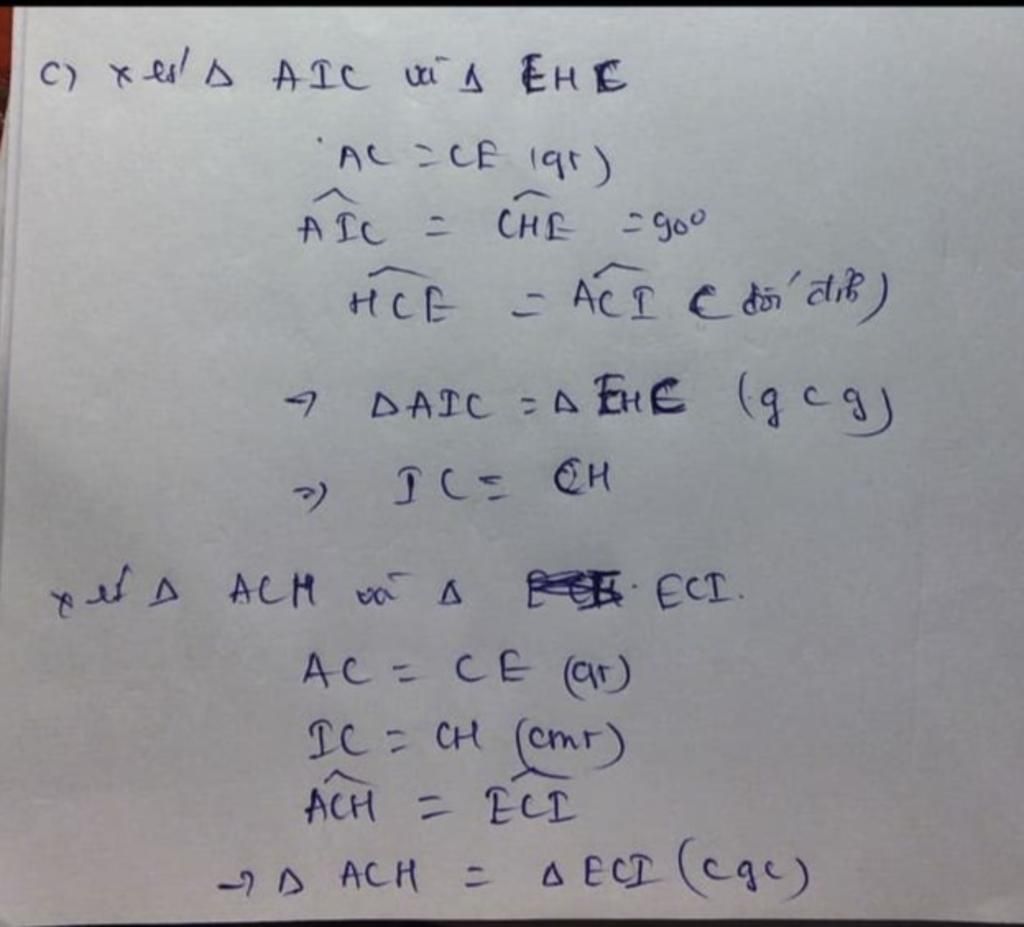 c) xét Δ AIC và Δ EHC
AC = CE (gt)
$\widehat{AIC}$ = $\widehat{CHE}$ = 90°
$\widehat{HCE}$ = $\widehat{ACI}$ (đối đỉnh)
→ ΔAIC = Δ EHC (g c g)
=> IC = CH
xét Δ ACH và Δ ECI.
AC = CE (gt)
IC = CH (cmt)
$\widehat{ACH}$ = $\widehat{ECI}$
→ Δ ACH = Δ ECI (cgc)